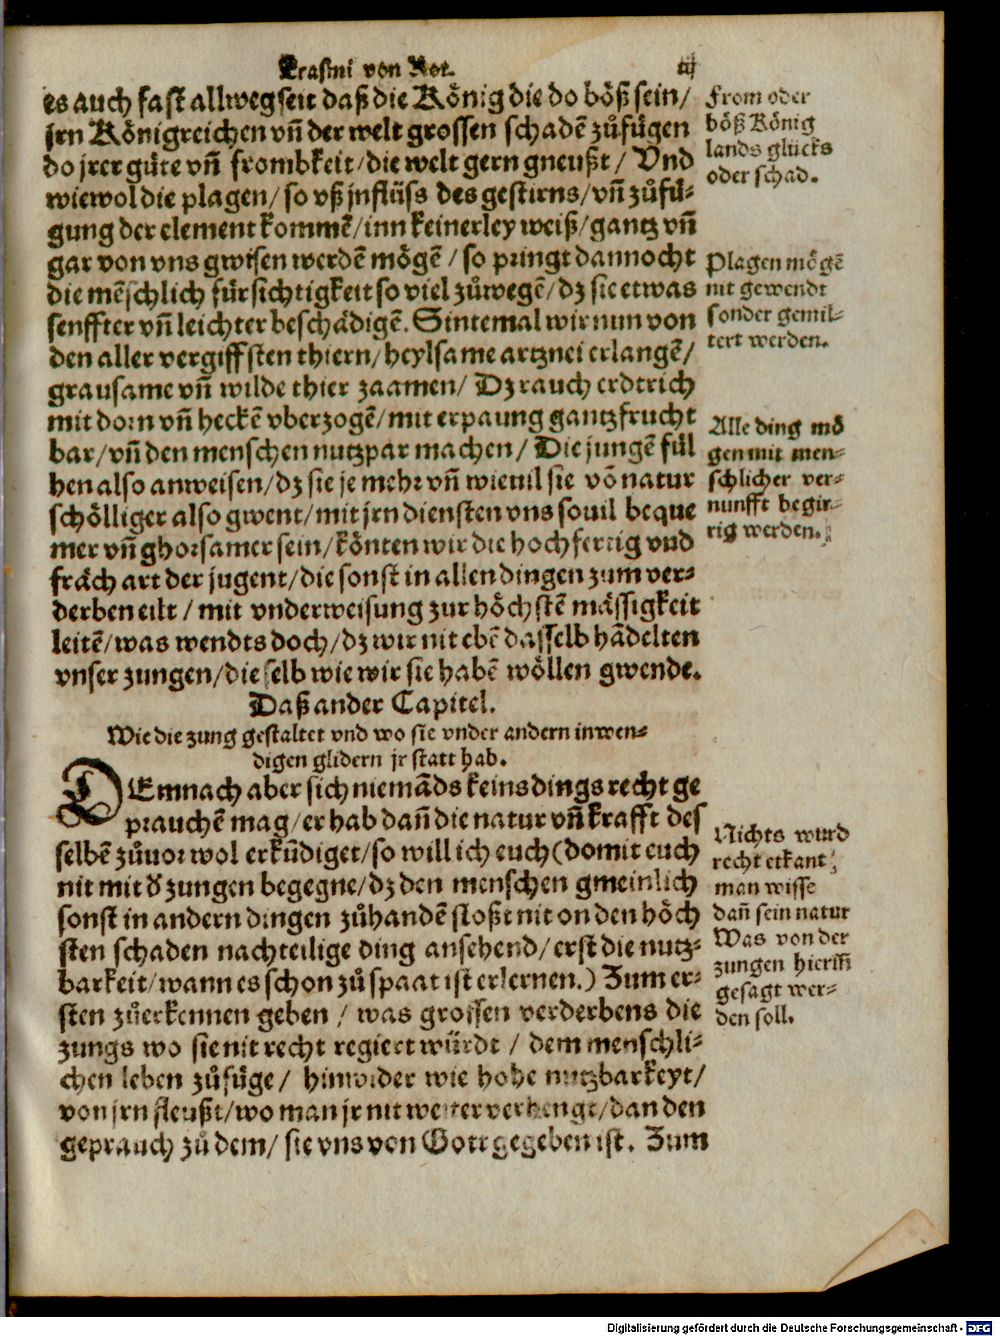 Erasmi von Rot. iij
es auch fast allweg seit daß die König die do böß sein/
jrn Königreichen vñ der welt grossen schadē zůfügen
do jrer güte vñ frombkeit/die welt gern gneußt/ Vnd
wiewol die plagen/ so vß jnflüss des gestirns/vñ zůfü⸗
gung der element kommē/inn keinerley weiß/gantz vñ
gar von vns gwisen werdē mögē/so pringt dannocht
die mēschlich fürsichtigkeit so viel zůwegē/dz sie etwas
senffter vñ leichter beschädigē. Sintemal wir nun von
den aller vergiffsten thiern/heylsame artznei erlangē/
grausame vñ wilde thier zaamen/ Dz rauch erdtrich
mit dorn vñ heckē vberzogē/mit erpaung gantz frucht
bar/vñ den menschen nutzpar machen/ Die jungē fül
hen also anweisen/dz sie je mehr vñ wieuil sie võ natur
schölliger also gwent/mit jrn diensten vns souil beque
mer vñ ghorsamer sein/könten wir die hochfertig vnd
fräch art der jugent/die sonst in allen dingen zum ver⸗
derben eilt/ mit vnderweisung zur höchstē mässigkeit
leitē/was wendts doch/dz wir nit ebē dasselb hādelten
vnser zungen/dieselb wie wir sie habē wöllen gwende.
Daß ander Capitel.
Wie die zung gestaltet vnd wo sie vnder andern inwen⸗
digen glidern jr statt hab.
DEmnach aber sich niemāds keins dings recht ge
prauchē mag/er hab dañ die natur vñ krafft des
selbē zůuor wol erkūdiget/so will ich euch(domit euch
nit mit d' zungen begegne/dz den menschen gmeinlich
sonst in andern dingen zůhandē stoßt nit on den höch
sten schaden nachteilige ding ansehend/erst die nutz⸗
barkeit/wann es schon zů spaat ist erlernen.) Zum er⸗
sten zůerkennen geben/ was grossen verderbens die
zungs wo sie nit recht regiert würde/ dem menschli⸗
chen leben zůfüge/ hinwider wie hohe nutzbarkeyt/
von jrn fleußt/wo man jr nit weiter verhengt/dan den
geprauch zů dem/ sie vns von Gott gegeben ist. Zum
From oder
böß König
lands glücks
oder schad.
Plagen mögē
nit gewendt
sonder gemil⸗
tert werden.
Alle ding mö
gen mit men⸗
schlicher ver⸗
nunfft begir⸗
rig werden.
Nichts würd
recht erkant
man wisse
dañ sein natur
Was von der
zungen hierin̄
gesagt wer⸗
den soll.
Digitalisierung gefördert durch die Deutsche Forschungsgemeinschaft - DFG